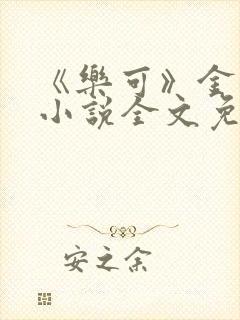 《樂可》金
小說全文免
安之余